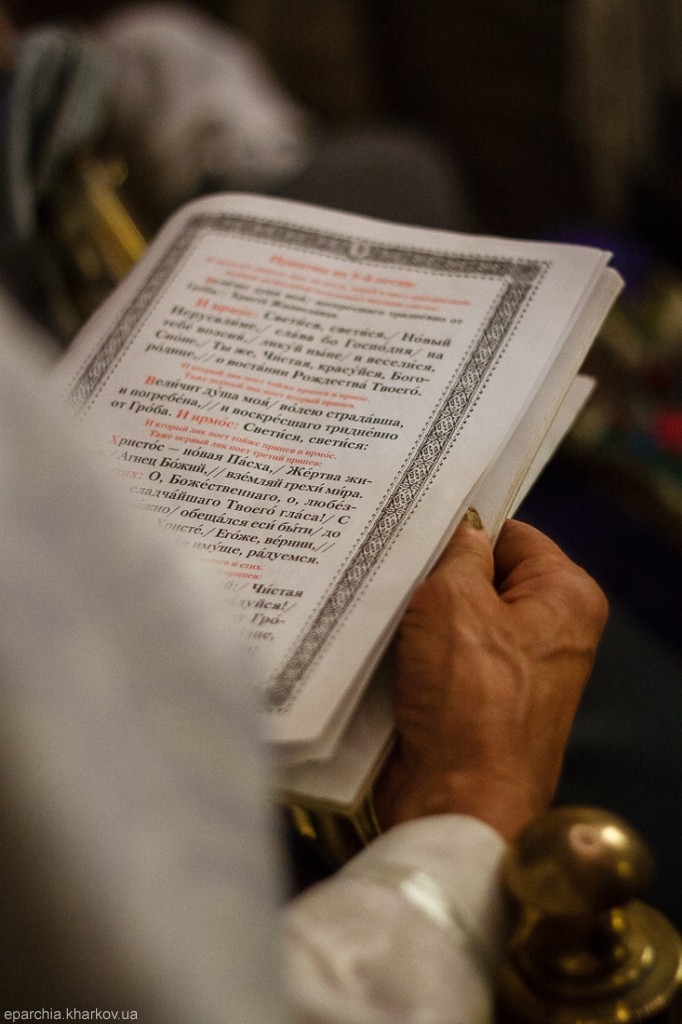 Припевы на 9-й песни.
Гро́ба, Христа́ Жизнода́вца.
И ирмо́с: Свети́ся, свети́ся,/ Но́вый
Иерусали́ме,/ сла́ва бо Госпо́дня/ на
тебе́ возсия́,/ лику́й ны́не/ и весели́ся,
Сио́не./ Ты же, Чи́стая, красу́йся, Бого-
ро́дице,// о воста́нии Рождества́ Твоего́.
И вторый лик поет тойже припев и ирмос.
Таже первый лик поет вторый припев:
Вели́чит душа́ моя́/ во́лею страда́вша,
и погребе́на,// и воскре́сшаго тридне́вно
от Гро́ба. И ирмо́с: Свети́ся, свети́ся:
И вторый лик поет тойже припев и ирмо́с.
Таже первый лик поет третий припев:
Христо́с — но́вая Па́сха,/ Же́ртва жи-
Агнец Бо́жий,// взе́мляй грехи́ ми́ра.
О, Боже́ственнаго, о, любе́з-
сладча́йшаго Твоего́ гла́са!/ С
обеща́лся еси́ бы́ти/ до
Христе́./ Его́же, ве́рнии,//
иму́ще, ра́дуемся.
и стих.
припев:
Чи́стая
Гро́-
eparchia.kharkov.ua